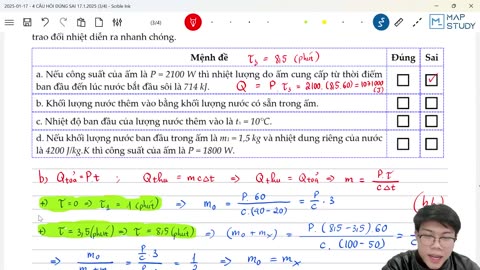 2025-01-17 - 4 CÂU HỎI ĐÚNG SAI 17.1.2025 (3/4) - Scrble Ink
(3/4)
MAP STUDY
trao đổi nhiệt diễn ra nhanh chóng.
Mệnh đề τs = 8,5 (phút) Đúng Sai
a. Nếu công suất của ấm là P = 2100 W thì nhiệt lượng do ấm cung cấp từ thời điểm
ban đầu đến lúc nước bắt đầu sôi là 714 kJ. Q = P τs = 2100.(8,5.60) = 1071000 (J)
b. Khối lượng nước thêm vào bằng khối lượng nước có sẵn trong ấm.
c. Nhiệt độ ban đầu của lượng nước thêm vào là tₓ = 10°C.
d. Nếu khối lượng nước ban đầu trong ấm là m₁ = 1,5 kg và nhiệt dung riêng của nước
là 4200 J/kg.K thì công suất của ấm là P = 1800 W.
b) Qtoả = Pt ; Qthu = mcΔt ⇒ Qthu = Qtoả ⇒ m = P.τ / c.Δt
+) τ = 0 ⇒ τ₁ = 1 (phút) ⇒ m₀ = P.60 / c.(40-20) = P/c . 3
+) τ = 3,5 (phút) ⇒ τ = 8,5 (phút) ⇒ (m₀ + mₓ) = P.(8,5 - 3,5).60 / c.(100 - 50) =
⇒ m₀ / m₀ + mₓ = P/c . 3 = 1 ⇒ m₀ = mₓ